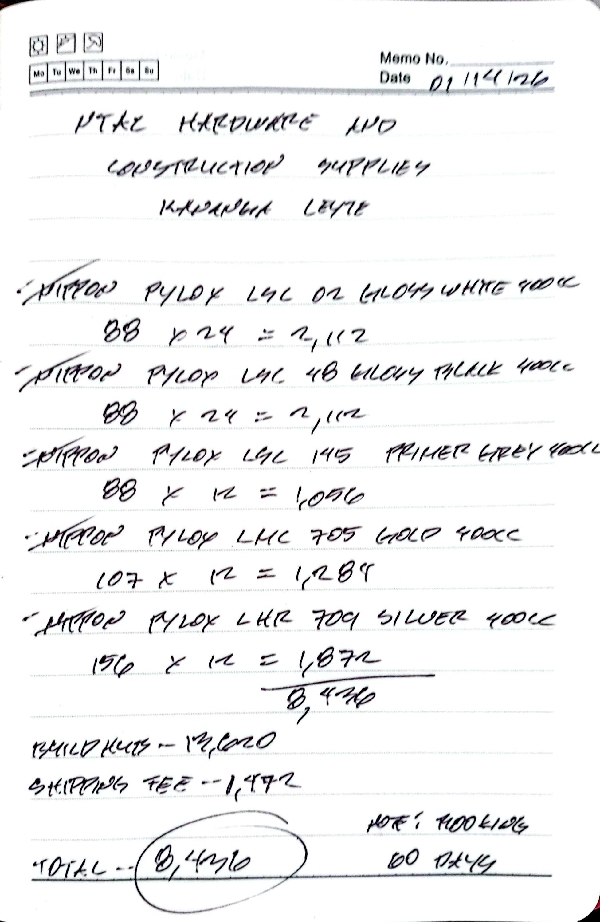 Mo Tu We Th Fr Sa Su
Memo No.
Date 01/14/26
NTAL HARDWARE AND
CONSTRUCTION SUPPLIES
KANANGA LEYTE
NIPPON PYLOX LSC 02 GLOSS WHITE 400cc
88 x 24 = 2,112
NIPPON PYLOX LSC 48 GLOSSY BLACK 400cc
88 x 24 = 2,112
NIPPON PYLOX LSC 145 PRIMER GREY 400cc
88 x 12 = 1,056
NIPPON PYLOX LMC 705 GOLD 400cc
107 x 12 = 1,284
NIPPON PYLOX LHR 709 SILVER 400cc
156 x 12 = 1,872
8,436
BUILDHUB - 13,620
SHIPPING FEE - 1,472
NOTE: BOOKING
TOTAL -- 8,436 60 DAYS